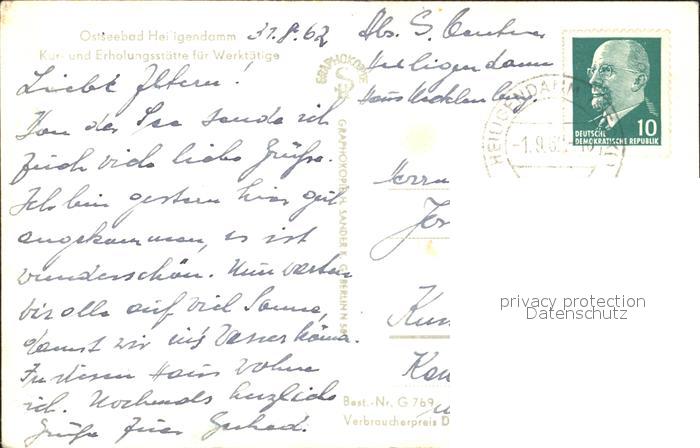 Ostseebad Heiligendamm 31.8.62
Kur- und Erholungsstätte für Werktätige
Liebe Eltern!
Von der See sende ich
Euch viele liebe Grüße.
Ich bin gestern hier gut
angekommen, es ist
wunderschön. Nun warten
wir alle auf viel Sonne,
damit wir ins Wasser können.
In diesem Haus wohne
ich. Nochmals herzliche
Grüße Euer
GRAPHOKOPIE
GRAPHOKOPIE H. SANDER K. G. BERLIN N 58
Best.-Nr. G 769
Verbraucherpreis D
Abs. S.
Heiligendamm
Haus Mecklenburg.
HEILIGENDAMM
-1.9.62
10
DEUTSCHE
DEMOKRATISCHE REPUBLIK
Herrn
privacy protection
Datenschutz